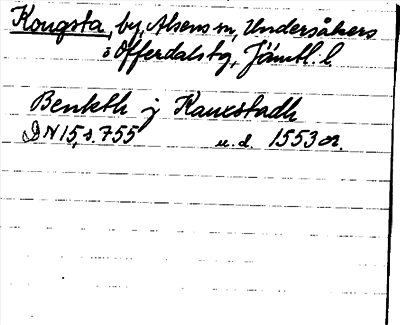 Kougsta, by, Alsens sn, Undersåkers
o Offerdals tg, Jämtl. l
Benkth j Kauxstadh
DN 15, s. 755 u. d. 1553 or.